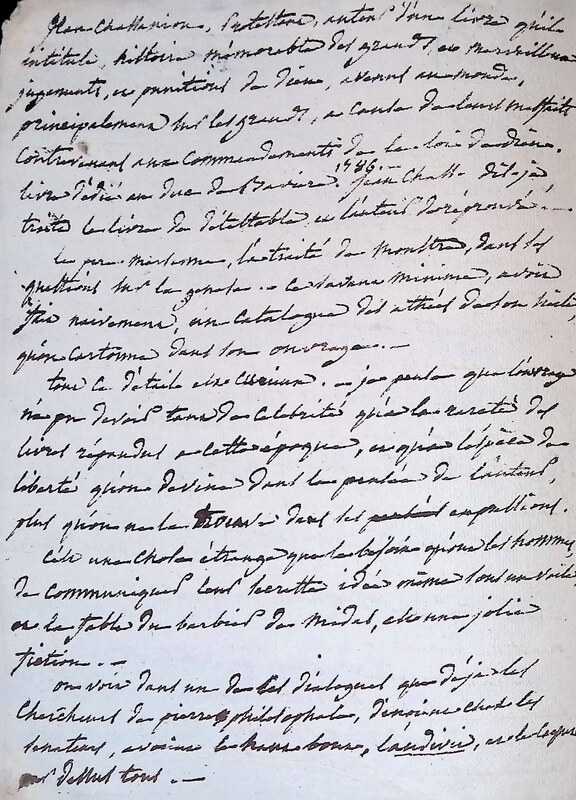 Jean Chassanion, Protestant, auteur d'un livre qu'il a
intitulé, histoire mémorable des grands, et merveilleux
jugements, et punitions de dieu, avenus au monde,
principalement sur les grands, a cause de leurs meffaits
contrevenant aux Commandements de la loi de dieu.
livre dédié au duc de Baviere. 1586. — Jean Chass. dit-je
traite le livre de détestable, et l'auteur de réprouvé. —
le pere mersenne, l'a traité de monstre, dans ses
questions sur la genese. — ce savant minime, avoit
fait naivement, un Catalogue des athées de son siecle,
qu'on cartonna dans son ouvrage. —
tout ce détail est curieux. — je pense que l'ouvrage
n'a pu devoir tant de célébrité qu'a la rareté des
livres répandus a cette époque, et qu'a l'espèce de
liberté qu'on devine dans la pensée de l'auteur,
plus qu'on ne la trouve dans ses expressions.
C'est une chose étrange que le besoin qu'ont les hommes
de communiquer leur secrette idée même sous un voile
et la fable du barbier de midas, est une jolie
fiction. —
on voit dans un de ces dialogues que déja les
Chercheurs de pierre philosophale, denoient chez les
senateurs, avoient la bonne, l'audivi, et le
dessus tout. —